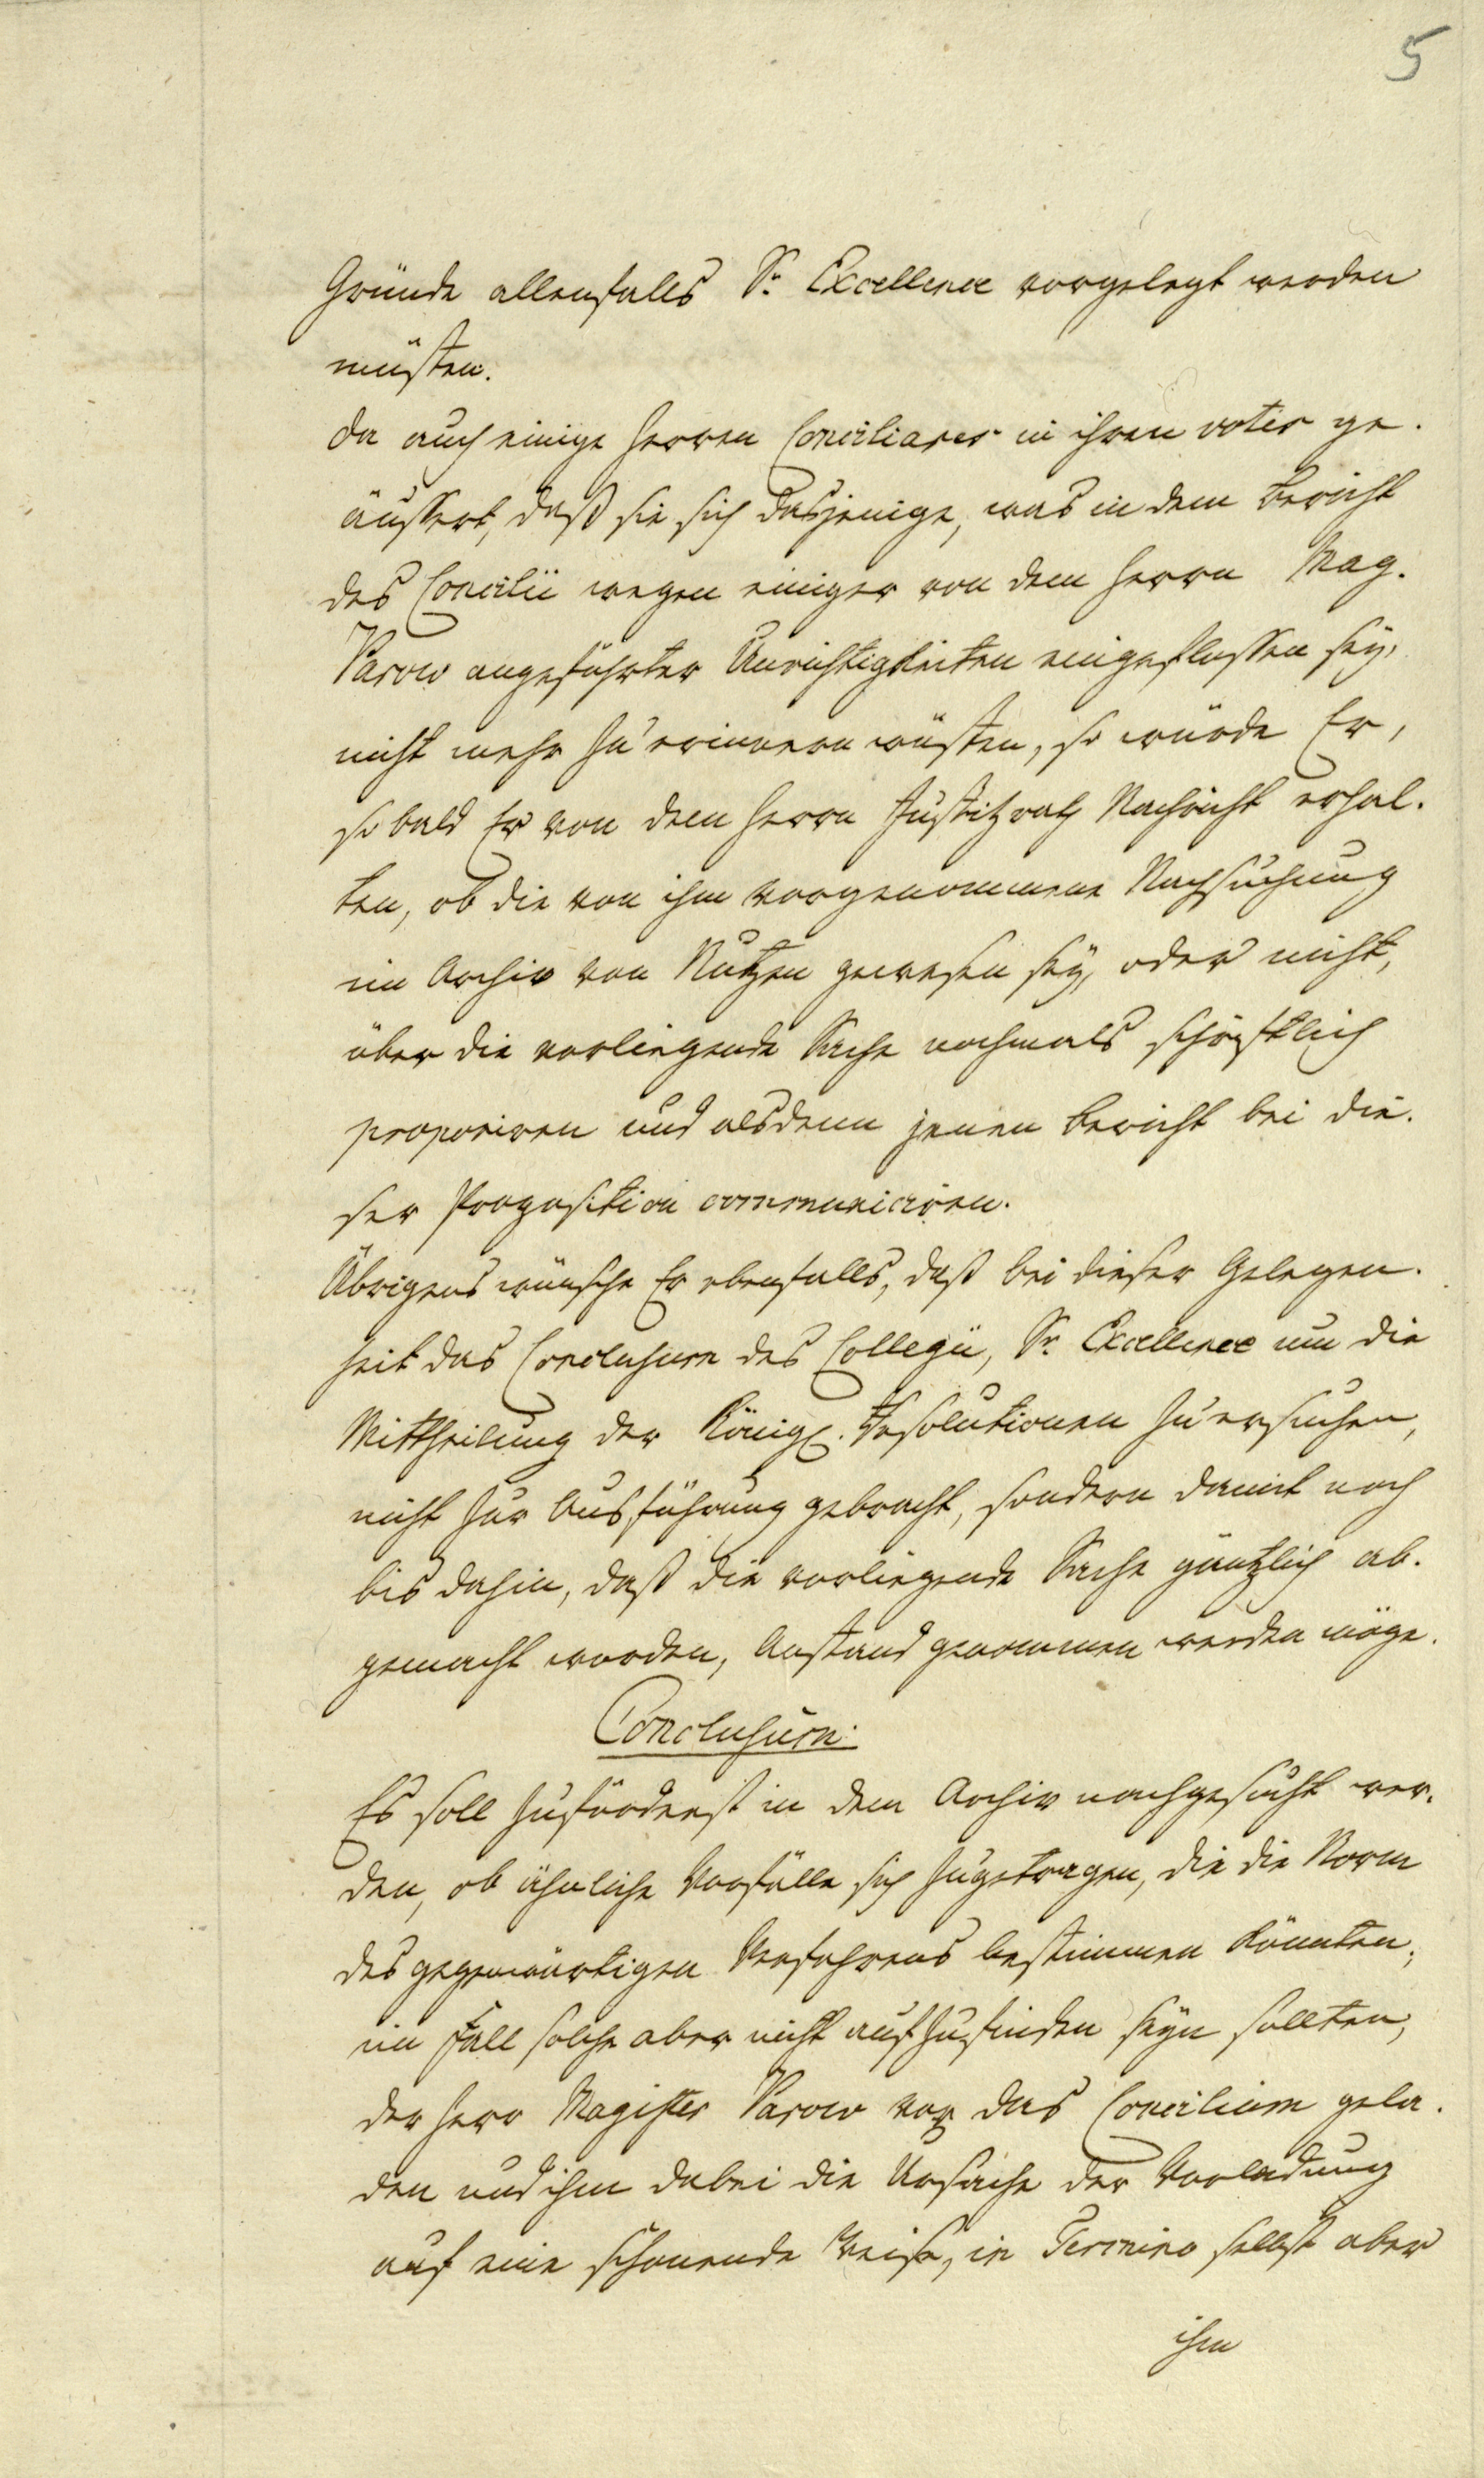 5
Gründe allenfalls Sr. Excellence vorgelegt werden
müsten.
Da auch einige Herren Conciliares in ihren votis ge-
äussert, daß sie sich dasjenige, was in dem Bericht
des Concilii wegen einiger von dem Herrn Mag.
Parow angeführter Unrichtigkeiten eingeflossen sey,
nicht mehr zu erinnern wüsten, so würde Er,
so bald Er von dem Herrn Justitzrath Nachricht erhal-
ten, ob die von ihm vorgenommene Nachsuchung
im Archiv von Nutzen gewesen sey, oder nicht,
über die vorliegende Sache nochmals schriftlich
proponiren und alsdenn jenen Bericht bei die-
ser Proposition communiciren.
Übrigens wünsche Er ebenfalls, daß bei dieser Gelegen-
heit das Conclusum des Collegii, Sr. Excellence um die
Mittheilung der Königl. Resolutionen zu ersuchen,
nicht zur Ausführung gebracht, sondern damit noch
bis dahin, daß die vorliegende Sache gäntzlich ab-
gemacht worden, Anstand genommen werden möge.
Conclusum:
Es soll zuförderst in dem Archiv nachgesucht wer-
den, ob ähnliche Vorfälle sich zugetragen, die die Norm
des gegenwärtigen Verfahrens bestimmen könnten;
im Fall solche aber nicht aufzufinden seyn sollten,
der Herr Magister Parow vor das Concilium gela-
den und ihm dabei die Ursache der Vorladung
auf eine schonende Weise, in Termino selbst aber
ihm